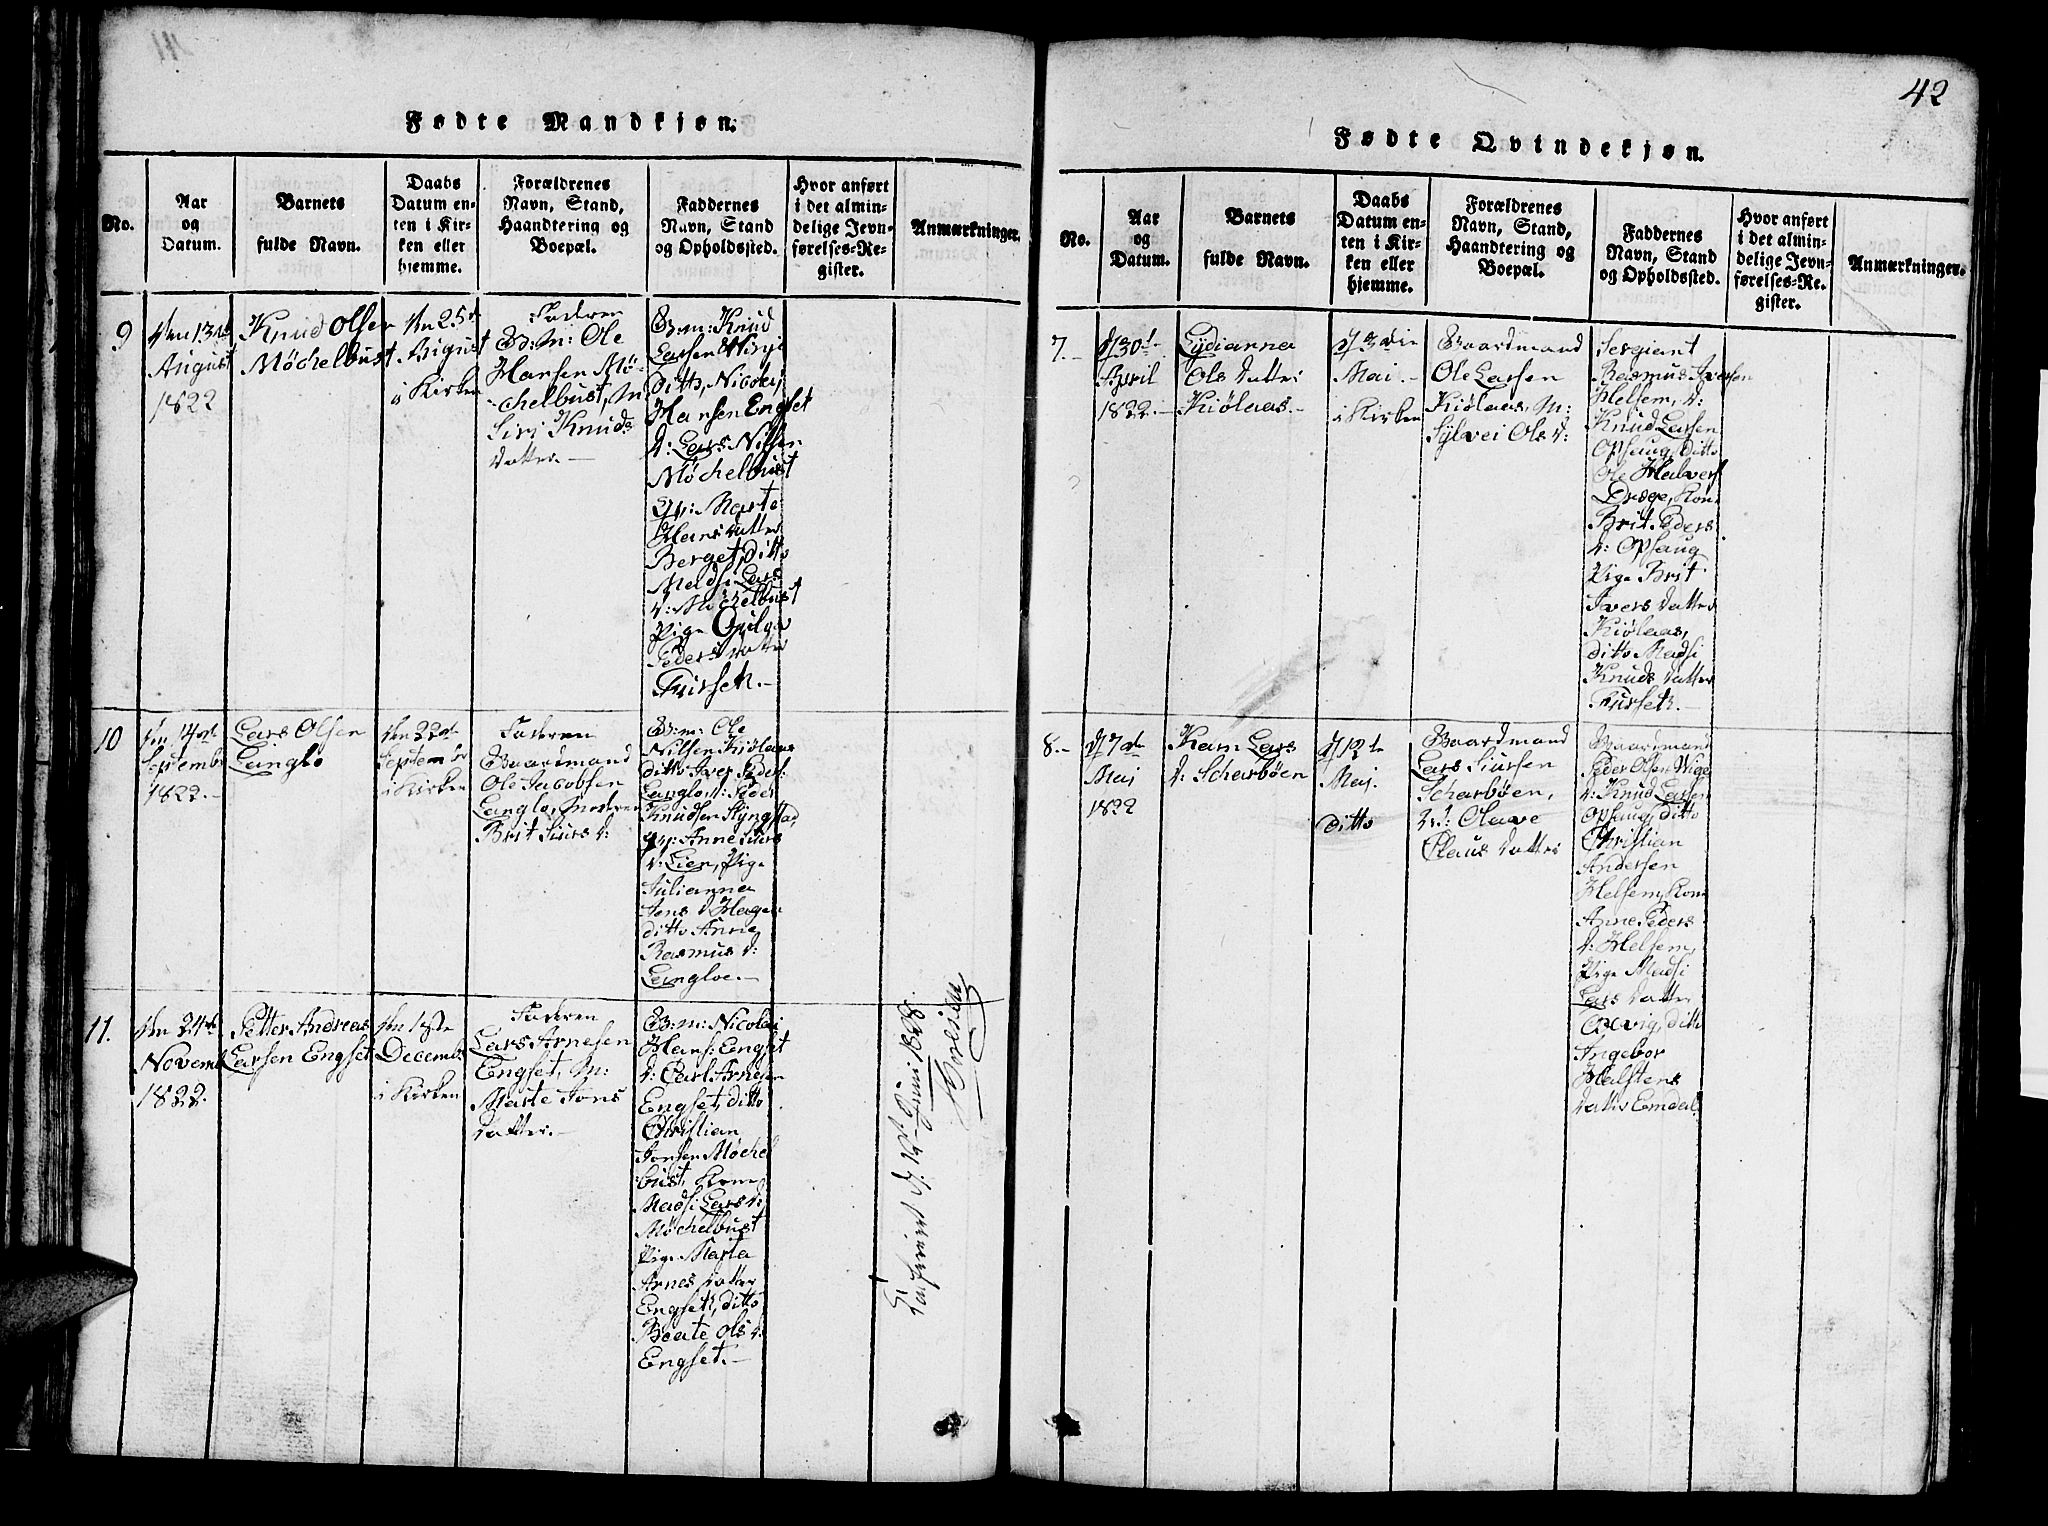 Fødte Mandkjøn.
No.
Aar
og
Datum.
Barnets
fulde Navn.
Daabs
Datum en-
ten i Kir-
ken eller
hjemme.
Forældrenes
Navn, Stand,
Haandtering og
Boepæl.
Faddernes
Navn, Stand
og Opholdssted.
Hvor anført
i det almin-
delige Jevn-
førelses-Re-
gister.
Anmærkninger.
9
den 13de
August
1822
Knud Olsen
Møchelbust
den 25de
August
i Kirken
Faderen
B:m: Ole
Hansen Mø-
chelbust, M
Siri Knuds
datter. -
B:m: Knud
Larsen
Ditto, Nicolaj
Hansen Engset
d: Lars Nilsen
Møchelbust
Marte
Hansdatter
Berget, ditto
Madsi Lars
d: Møchelbust
Pige
Peders datter
Furseth. -
10
den 14de
Septembr
1822. -
Lars Olsen
Langlo
den 22de
Septembr
i Kirken
Faderen
Baardmand
Ole Jacobsen
Langlo, Moderen
Brit Siurs d:
B:m: Ole
Nilsen Kiølaas
ditto Iver Peders:
Langlo d: Peder
Knudsen Styngstad,
Anne Siurs
d: Lien, Pige
Julianna
Jons d Hagen
ditto Anne
Rasmus d:
Langloe. -
11.
den 24de
Novemb
1822.
Petter Andreas
Larsen Engset
den 1ste
Decemb
i Kirken
Faderen
Lars Arnesen
Engset, M:
Marte Jons
datter. -
B:m: Nicolai
Hans: Engset
d: Carl Arnesen
Engset, ditto
Christian
Jonsen Møchel
bust, Kone
Madsi Lars d:
Møchelbust
Pige Marta
Arnes datter
Engset, ditto
Beate Ols d:
Engset. -
Juni 1828.
42
Fødte Qvindekjøn.
No.
Aar
og
Datum.
Barnets
fulde Navn.
Daabs
Datum en-
ten i Kir-
ken eller
hjemme.
Forældrenes
Navn, Stand,
Haandtering og
Boepæl.
Faddernes
Navn, Stand
og Opholdssted.
Hvor anført
i det almin-
delige Jevn-
førelses-Re-
gister.
Anmærkninger.
7. -
d 30te
April
1822. -
Lydianna
Ols datter
Kiølaas. -
d 3die
Mai. -
i Kirken
Baardmand
Ole Larsen
Kiølaas, M:
Sylvei Ols d:
Sergiant
Rasmus Iversen
Helsem, d:
Knud Larsen
Opsaug, ditto
Ole Halvers
Drøge, Kon
Brit Peders
d: Opsaug
Pige Brit
Ivers datter
Kiølaas,
ditto Madsi
Knuds datter
Furseth. -
8. -
d 7de
Maj
1822
Karn Lars
d: Scharbøen
d 12te
Maj.
ditto
Baardmand
Lars Siursen
Scharbøen,
Olave
Claus datter
Baardmand
Peder Olsen Wige
d: Knud Larsen
Opsaug, ditto
Christian
Andersen
Helsem, Kon
Anne Peders
d: Helsem,
Pige Madsi
Lars datter
ditto
Ingebor
Halstens
datter Emdal